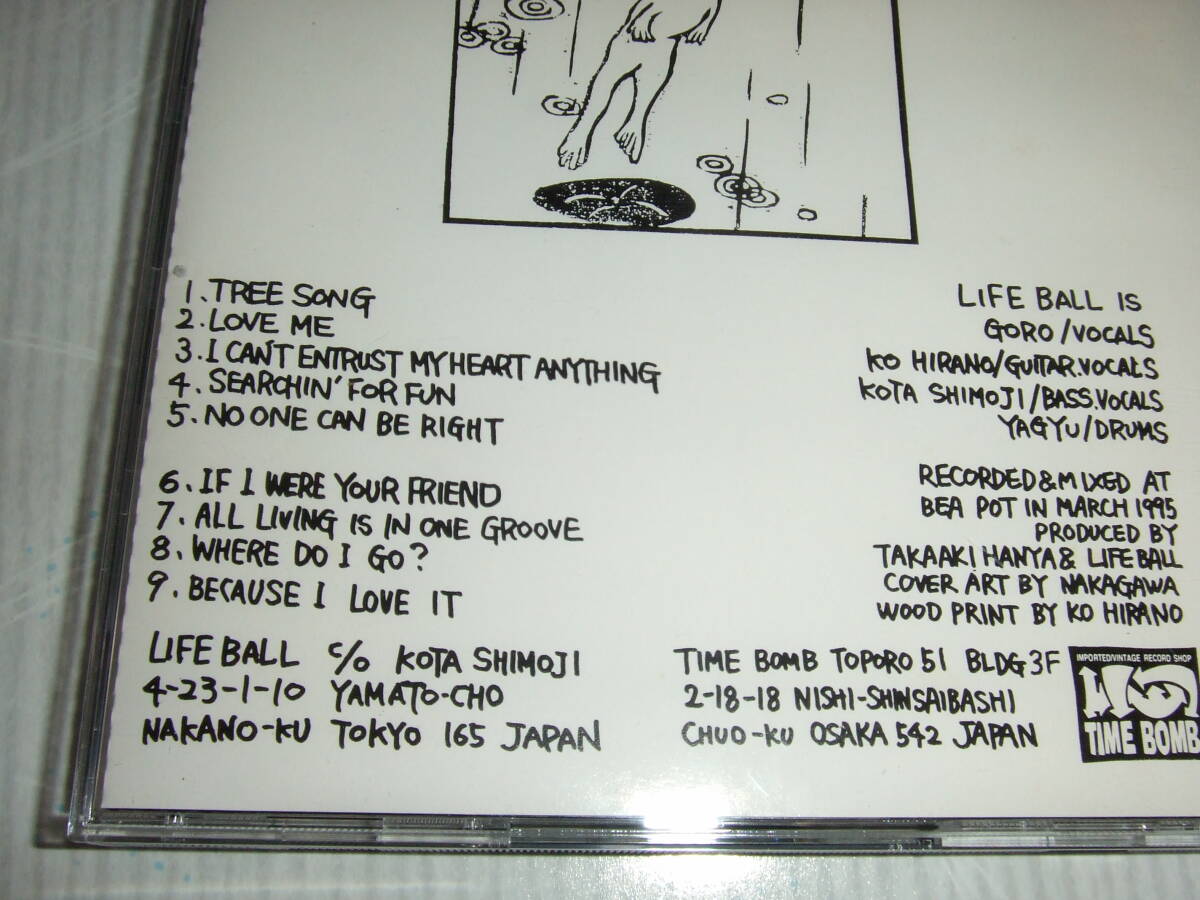 1. TREE SONG
2. LOVE ME
3. I CAN'T ENTRUST MY HEART ANYTHING
4. SEARCHIN' FOR FUN
5. NO ONE CAN BE RIGHT
6. IF I WERE YOUR FRIEND
7. ALL LIVING IS IN ONE GROOVE
8. WHERE DO I GO?
9. BECAUSE I LOVE IT
LIFE BALL IS
GORO/VOCALS
KO HIRANO/GUITAR.VOCALS
KOTA SHIMOJI/BASS.VOCALS
YAGYU/DRUMS
RECORDED&MIXED AT
BEA POT IN MARCH 1995
PRODUCED BY
TAKAAKI HANYA & LIFE BALL
COVER ART BY NAKAGAWA
WOOD PRINT BY KO HIRANO
LIFE BALL c/o KOTA SHIMOJI
4-23-1-10 YAMATO-CHO
NAKANO-KU TOKYO 165 JAPAN
TIME BOMB TOPORO 51 BLDG 3F
2-18-18 NISHI-SHINSAIBASHI
CHUO-KU OSAKA 542 JAPAN
IMPORTED/VINTAGE RECORD SHOP
TIME BOMB